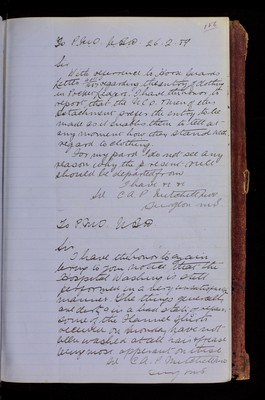 To P.M.O. 26.2.89
Sir
With reference to your
letter regarding the entry of clothing
in I have the honor to
report that the N.C.O. of this
Detachment prefer the entry to be
made as it enables them to tell at
any moment how they stand with
regard to clothing.
For my part I do not see any
reason why the present rule
should be departed from
I have &c &c
Surgeon
To P.M.O.
Sir
I have the honor to again
bring to your notice that the
Hospital Washing is still
performed in a very unsatisfactory
manner. The things generally
are dirty & in a bad state of repair.
Some of the Flannel Shirts
received on Monday have not
been washed at all
being most apparent on